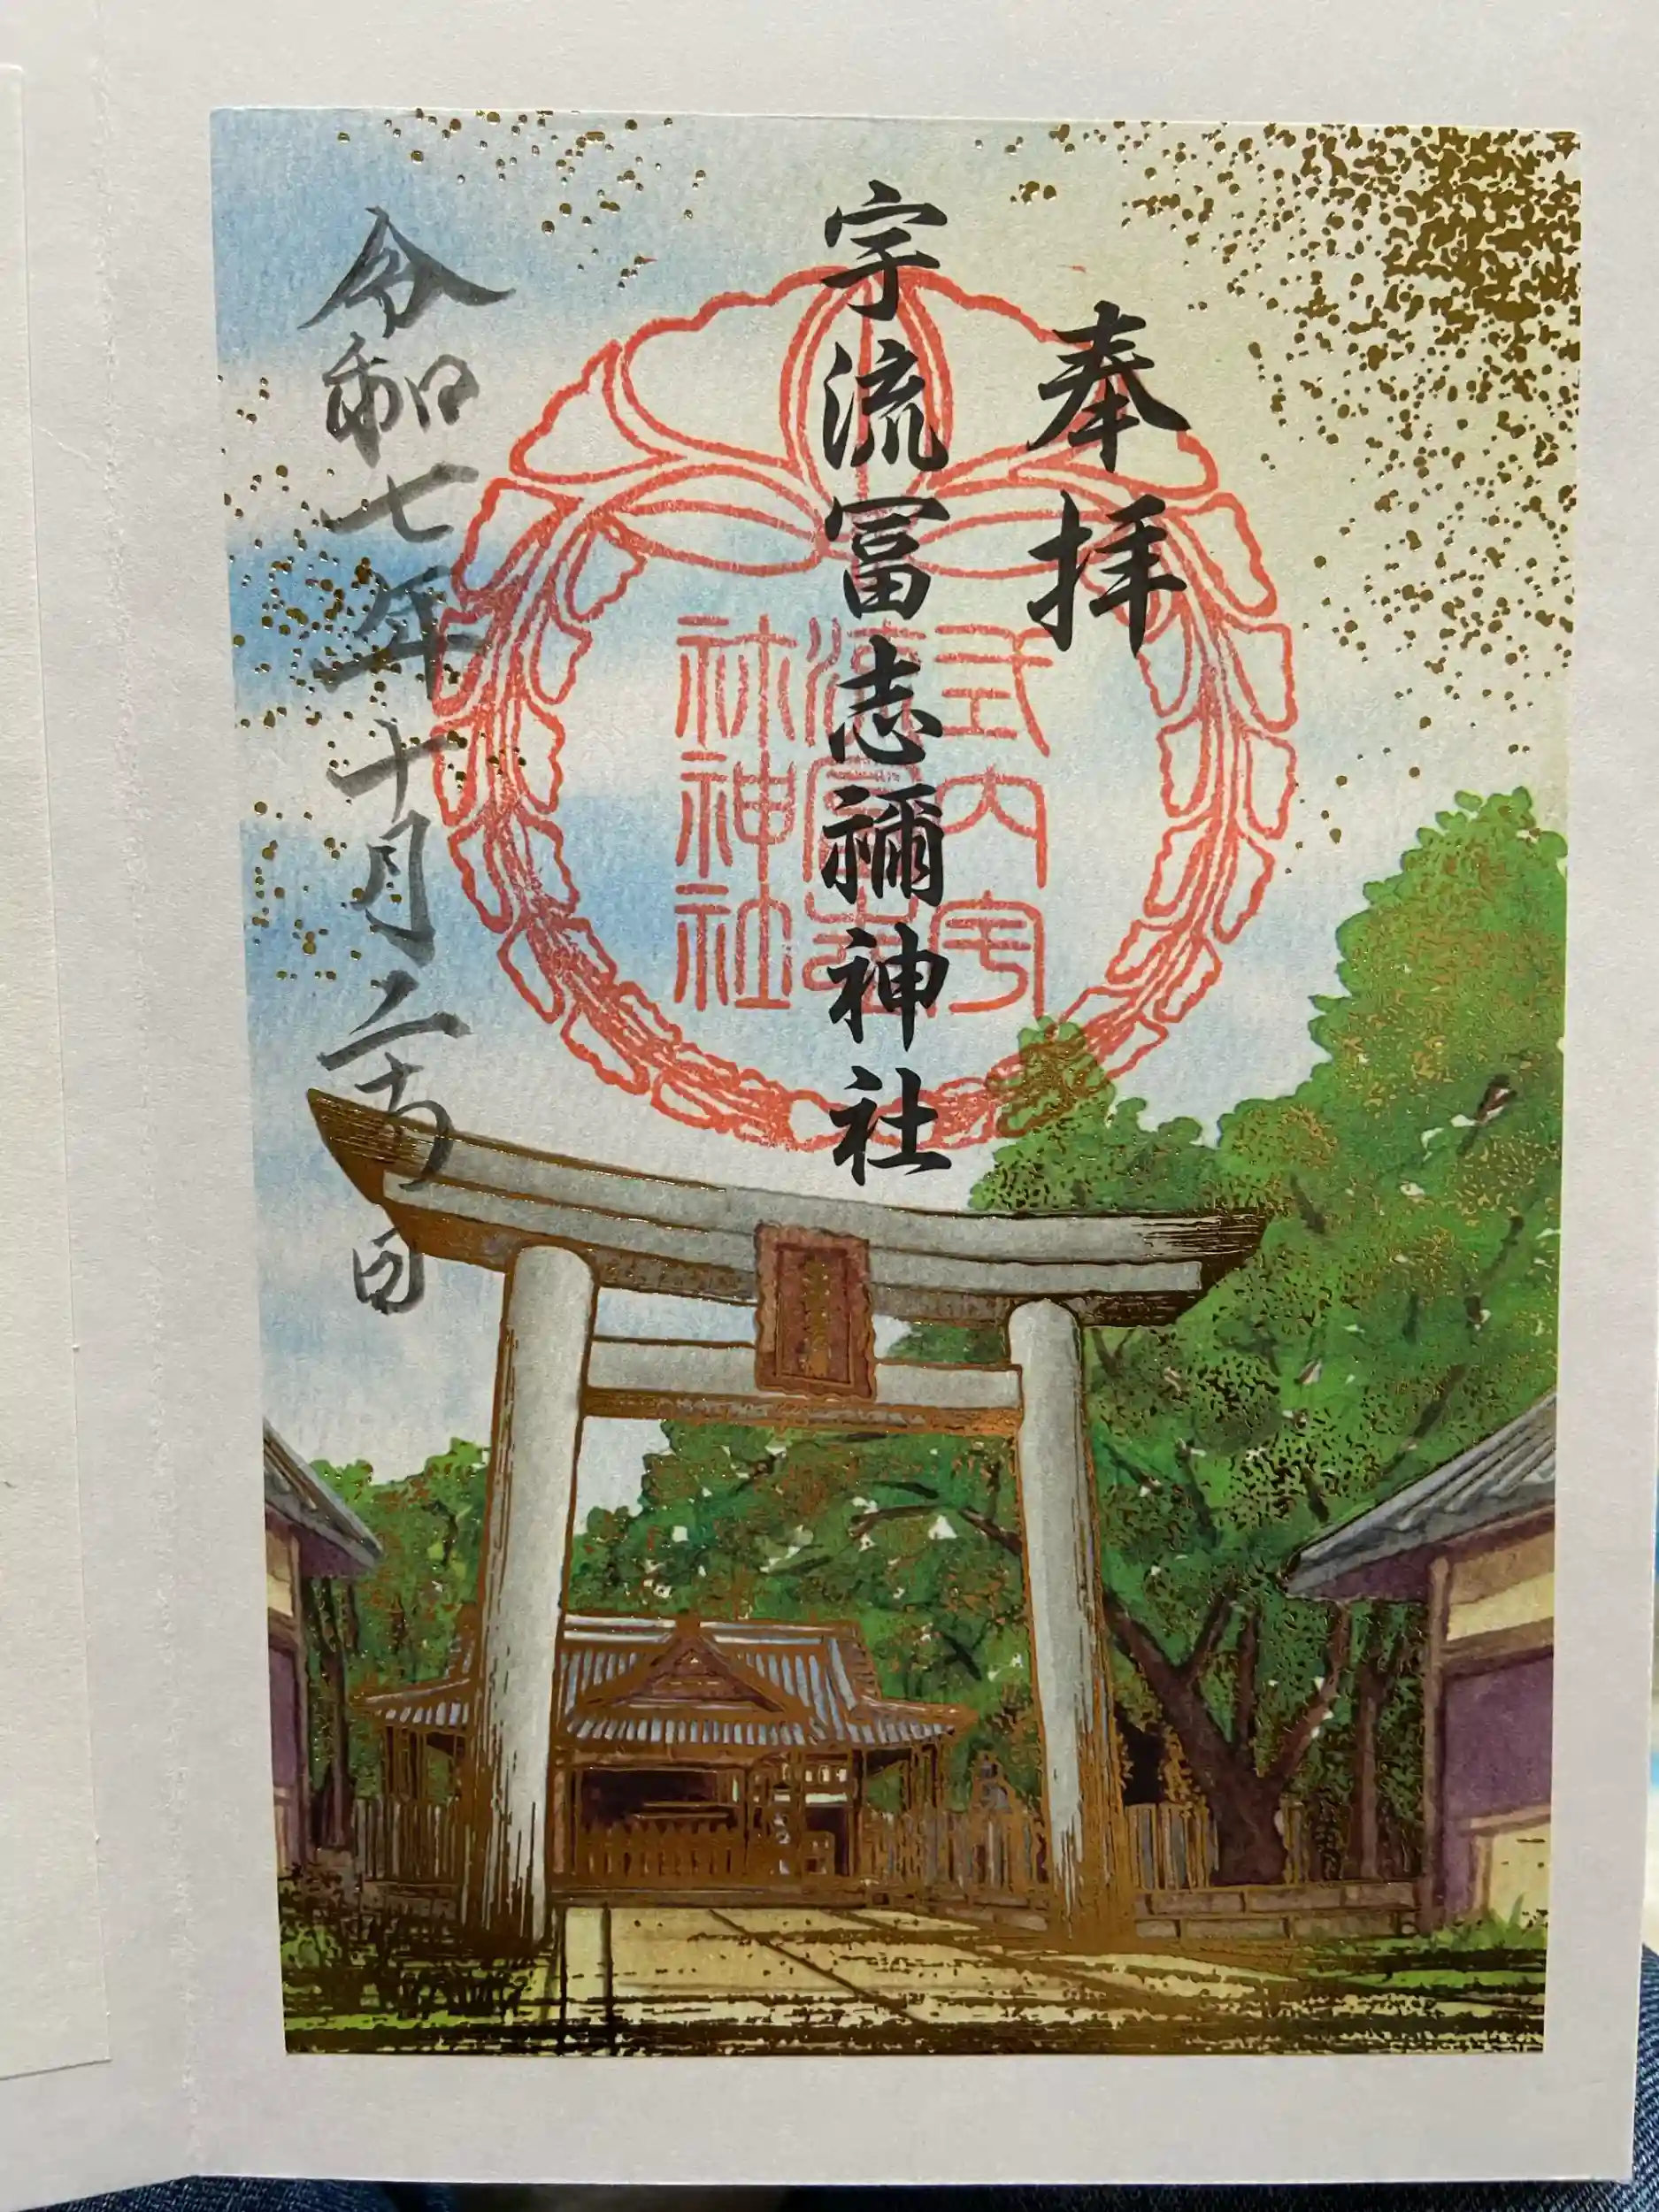 奉拝
宇流冨志禰神社
式内宇
流冨志
祢神社
令和七年十月二十日